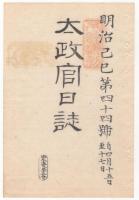 明治己巳第四十四號
自四月十五日
至十七日
太政官日誌